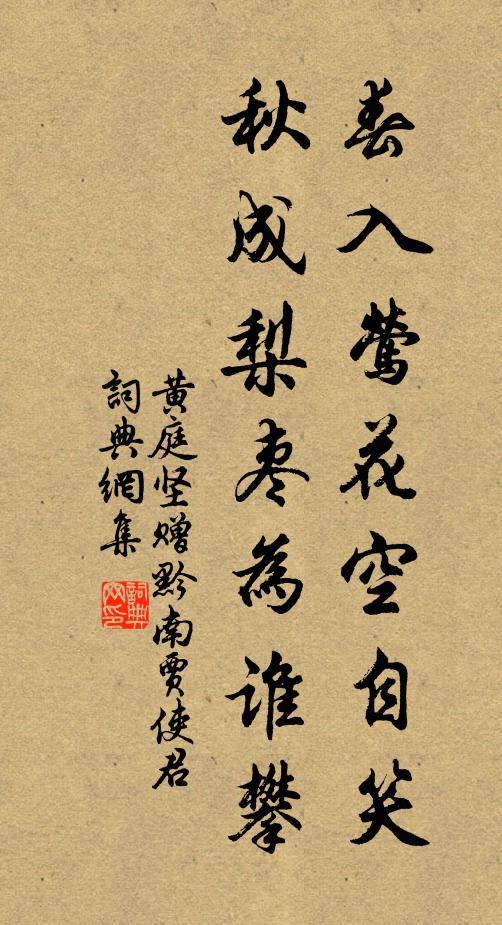 春入莺花空自笑
秋成梨枣為谁攀
黄庭坚赠黔南贾使君
詞典網集
詞典
网印